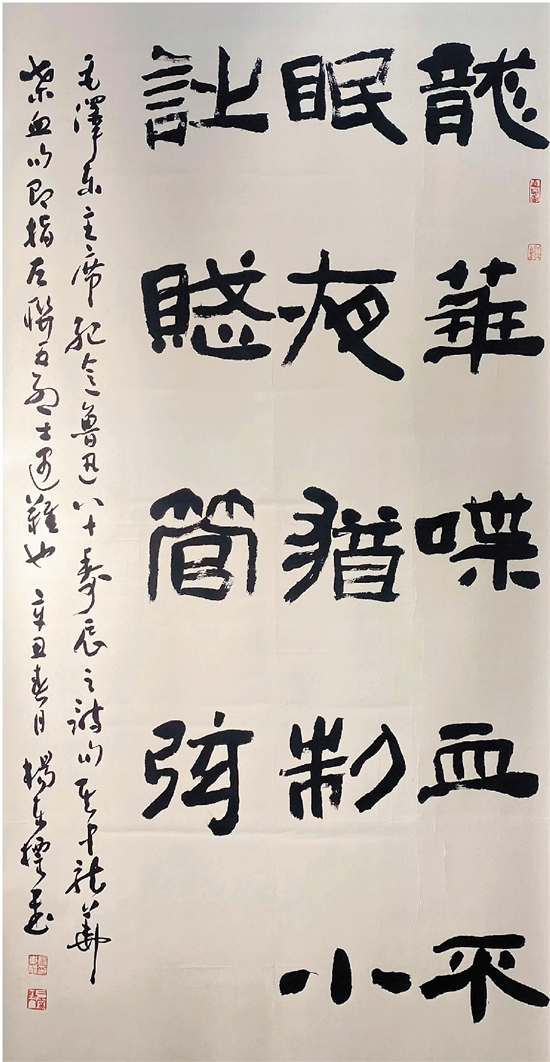 龍華喋血不
眠夜猶制小
詩賦管弦
毛澤東主席紀念魯迅八十壽辰之詩句其中龍華
喋血句即指左聯五烈士遇難也 辛丑春日 楊東標書